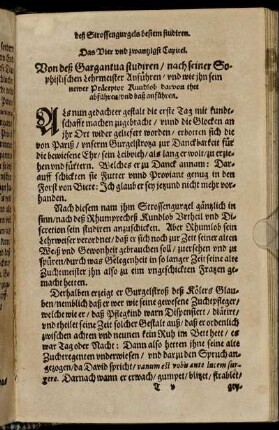 deß Strossengurgels bestem studiren.
Das Vier vnd zwantzigst Capitel.
Von deß Gargantua studiren / nach seiner So-
phistischen Lehrmeister Anführen / vnd wie jhn sein
newer Præceptor Kundlob darvon thet
abführen / vnd baß anführen.
Als nun gedachter gestalt die erste Tag mit kunde-
schafft machen zugebracht / vnnd die Glocken an
jhr Ort wider geliefert worden / erbotten sich die
von Pariß / vnserm Gurgelstroza zur Danckbarkeit für
die bewisene Ehr / sein Leibvich als lang er wolt / zu erzie-
hen vnd füttern. Welches er zu Danck annam: Dar-
auff schickten sie Futter vnnd Proviant genug in den
Forst von Biere: Ich glaub er sey jetzund nicht mehr vor-
handen.
Nach diesem nam jhm Strossengurgel gäntzlich in
sinn / nach deß Rhumprechtß Kundlob Vrtheil vnd Di-
scretion sein studiren anzuschicken. Aber Rhumlob sein
Lehrweiser verordnet / daß er sich noch zur Zeit seiner alten
Weiß vnd Gewonheit gebrauchen soll / zuersehen vnd zu
spüren / durch was Gelegenheit in so langer Zeit seine alte
Zuchtmeister jhn also zu eim vngeschickten Fratzen ge-
macht hetten.
Derhalben erzeigt er Gurgelstroß deß Kölers Glau-
ben / nemblich daß er wer wie seine gewesene Zuchtpfleger /
welche wie er / daß Pflegkind warn
vnd theilet seine Zeit solcher Gestalt auß / daß er ordenlich
zwischen achten vnd neunen kein Ruh im Bett hett / es
war Tag oder Nacht: Dann also hetten jhne seine alte
Zuchtregenten vnderwiesen / vnd darzu den Spruch an-
gezogen / da David spricht / vanum est vobis ante lucem sur-
gere. Darnach wann er erwach / gumpet / blitzet / strablet /
T v gry-